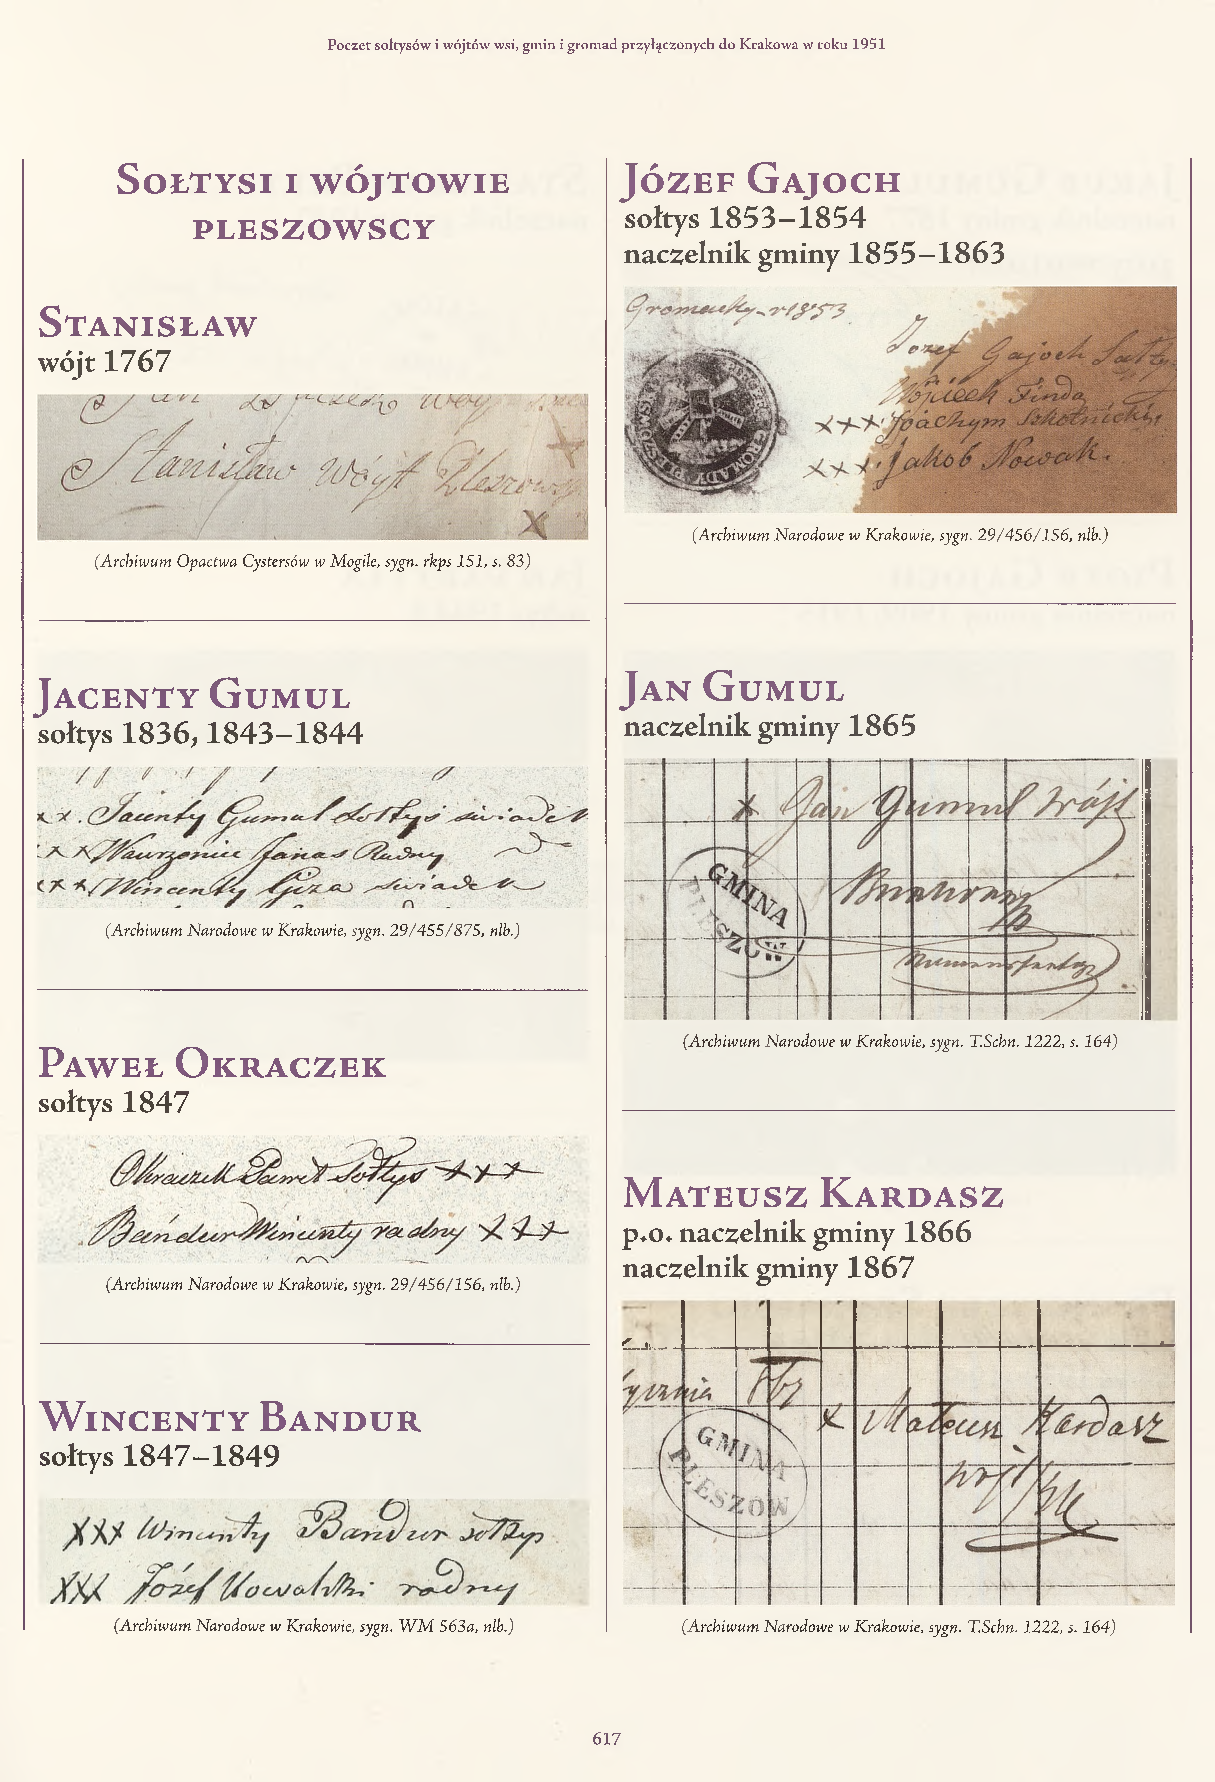 Poczet sołtysów i wójtów wsi, gmin i gromad przyłączonych do Krakowa w roku 1951
Sołtysi i wójtowie
pleszowscy
Stanisław
wójt 1767
Stanisław Wóyt
X
(Archiwum Opactwa Cystersów w Mogile, sygn. rkps 151, s. 83)
Jacenty Gumul
sołtys 1836, 1843–1844
x x. Jacenty Gumul sołtys świadek
x x Wawrzeniec Janas Radny
x x x Wincenty Giza świadek
(Archiwum Narodowe w Krakowie, sygn. 29/455/875, nlb.)
Paweł Okraczek
sołtys 1847
Okraczek Paweł Sołtys x x x
Bandur Wincenty radny x x x
(Archiwum Narodowe w Krakowie, sygn. 29/456/156, nlb.)
Wincenty Bandur
sołtys 1847–1849
xxx Wincenty Bandur sołtys
xxx Józef Kowalski radny
(Archiwum Narodowe w Krakowie, sygn. WM 563a, nlb.)
Józef Gajoch
sołtys 1853–1854
naczelnik gminy 1855–1863
Gromadzky r 1853
Jozef Gajoch Sołtys
Wojciech Finda
xxx Joachym Szkotnicky
xxx Jakob Nowak.
(Archiwum Narodowe w Krakowie, sygn. 29/456/156, nlb.)
Jan Gumul
naczelnik gminy 1865
x Jan Gumul Wójt
GMINA
PLESZÓW
(Archiwum Narodowe w Krakowie, sygn. T.Schn. 1222, s. 164)
Mateusz Kardasz
p.o. naczelnik gminy 1866
naczelnik gminy 1867
ycznia 867
x Mateusz Kardasz
wojt
GMINA
PLESZÓW
(Archiwum Narodowe w Krakowie, sygn. T.Schn. 1222, s. 164)
617